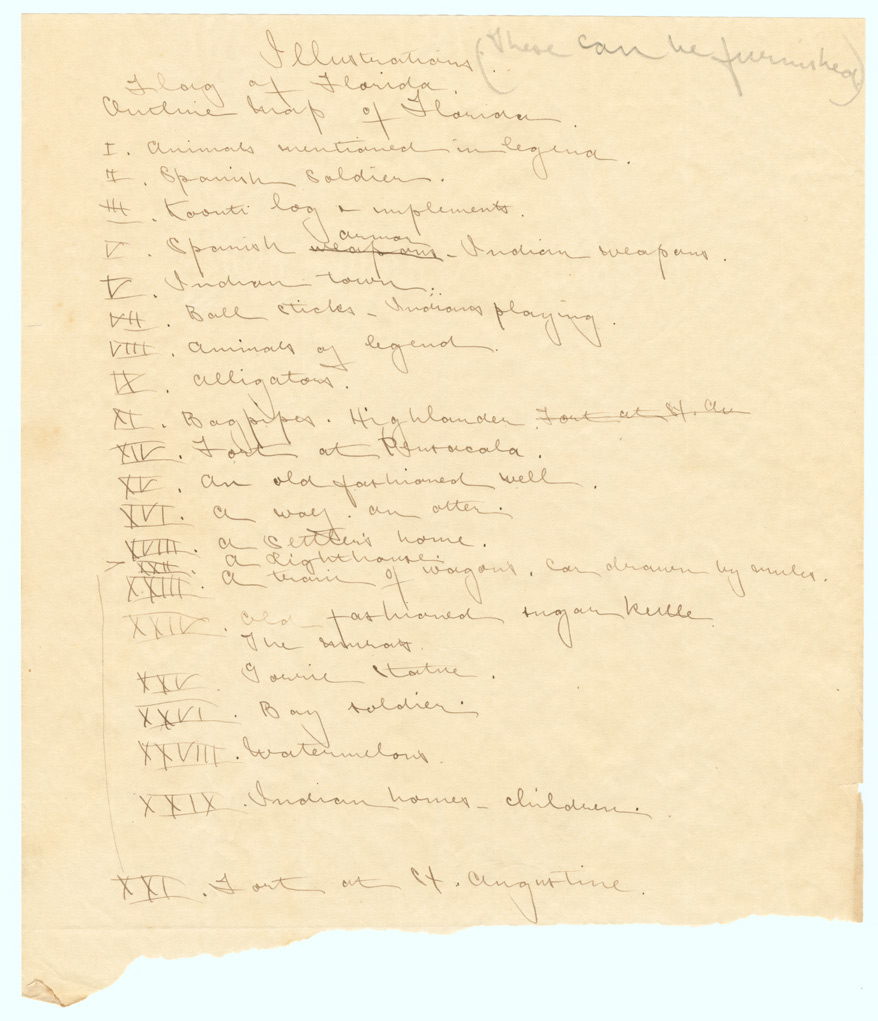 Illustrations. (These can be furnished)
Flag of Florida.
Outline map of Florida.
I. Animals mentioned in legend.
II. Spanish Soldier.
III. Koonti log & implements.
V. Spanish weapons armor - Indian weapons.
V. Indian town.
VII. Ball sticks - Indians playing.
VIII. Animals of legend.
IX. Alligators.
XI. Bagpipes. Highlander Fort at St. Au
XIV. Fort at Pensacola.
XV. An old fashioned well.
XVI. A way. an otter.
XVIII. A Settler's home.
> XXII. A Lighthouse.
XXIII. A train of wagons. Car drawn by mules.
XXIV. Old fashioned sugar kettle
The
XXV. Gorrie Statue.
XXVI. Boy soldier.
XXVIII. Watermelons.
XXIX. Indian homes - children.
XXI. Fort at St. Augustine.